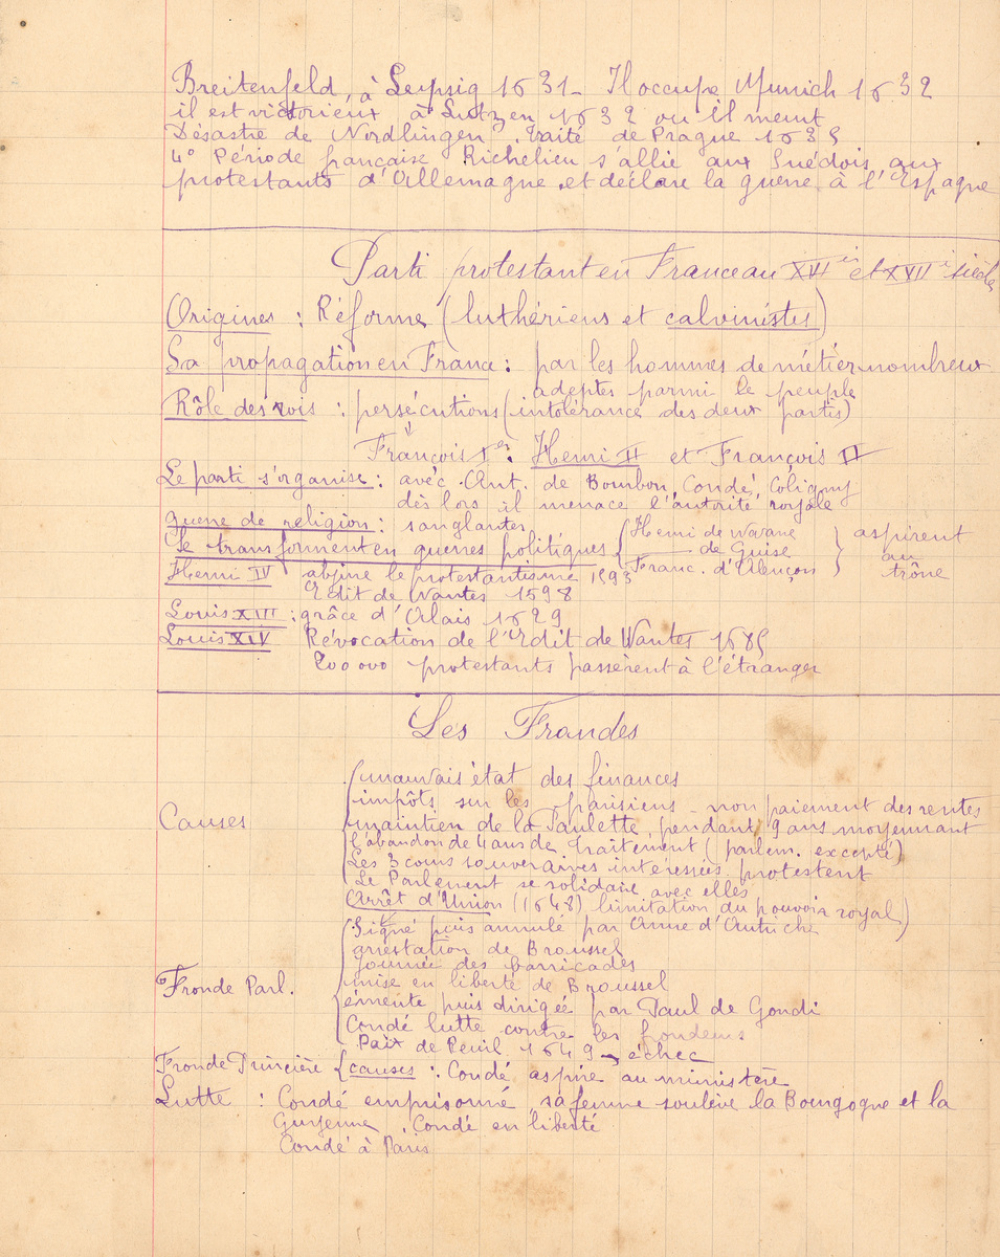 Breitenfeld, à Leipsig 1631 - Il occupe Munich 1632
il est victorieux à Lutzen 1632 ou il meurt
Désastre de Nordlingen. Traité de Prague 1635
4° Période française Richelieu s'allie aux Suédois, aux
protestants d'Allemagne et déclare la guerre à l'Espagne
Parti protestant en France au XVI et XVII siècles
Origines : Réforme (luthériens et calvinistes)
Sa propagation en France : par les hommes de métier nombreux
adeptes parmi le peuple
Rôle des rois : persécutions (intolérance des deux partis)
François Ier. Henri II et François II
Le parti s'organise : avec Ant. de Bourbon, Condé, Coligny
dès lors il menace l'autorité royale
guerre de religion : sanglantes
Se transforment en guerres politiques { Henri de Navarre
—— de Guise } aspirent au trône
Franc. d'Alençon
Henri IV abjure le protestantisme 1593
Edit de Nantes 1598
Louis XIII : grâce d'Alais 1629
Louis XIV Révocation de l'Edit de Nantes 1685
200 000 protestants passèrent à l'étranger
Les Frondes
Causes { mauvais état des finances
impôts sur les parisiens - non paiement des rentes
maintien de la Paulette, pendant 9 ans moyennant
l'abandon de 4 ans de traitement (parlem. excepté)
Les 3 cours souveraines intéressées protestent
Le Parlement se solidarise avec elles
Arrêt d'Union (1648) limitation du pouvoir royal)
Signé puis annulé par Anne d'Autriche
arrestation de Broussel
journée des barricades
Fronde Parl. { mise en liberté de Broussel
émeute puis dirigée par Paul de Gondi
Condé lutte contre les frondeurs
Paix de Rueil 1649 → échec
Fronde Princière { causes : Condé aspire au ministère
Lutte : Condé emprisonné, sa femme soulève la Bourgogne et la
Guyenne. Condé en liberté
Condé à Paris